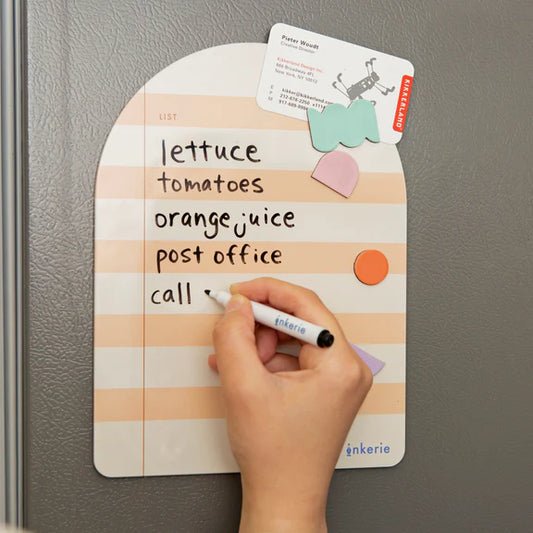 Pieter Woudt
Creative Director
Kikkerland Design Inc.
666 Broadway 4FL
New York, NY 10012
E kikker@kikkerland.com
P 212-678-2250
M 917-689-0066
KIKKERLAND
LIST
lettuce
tomatoes
orange juice
post office
call
inkerie
inkerie